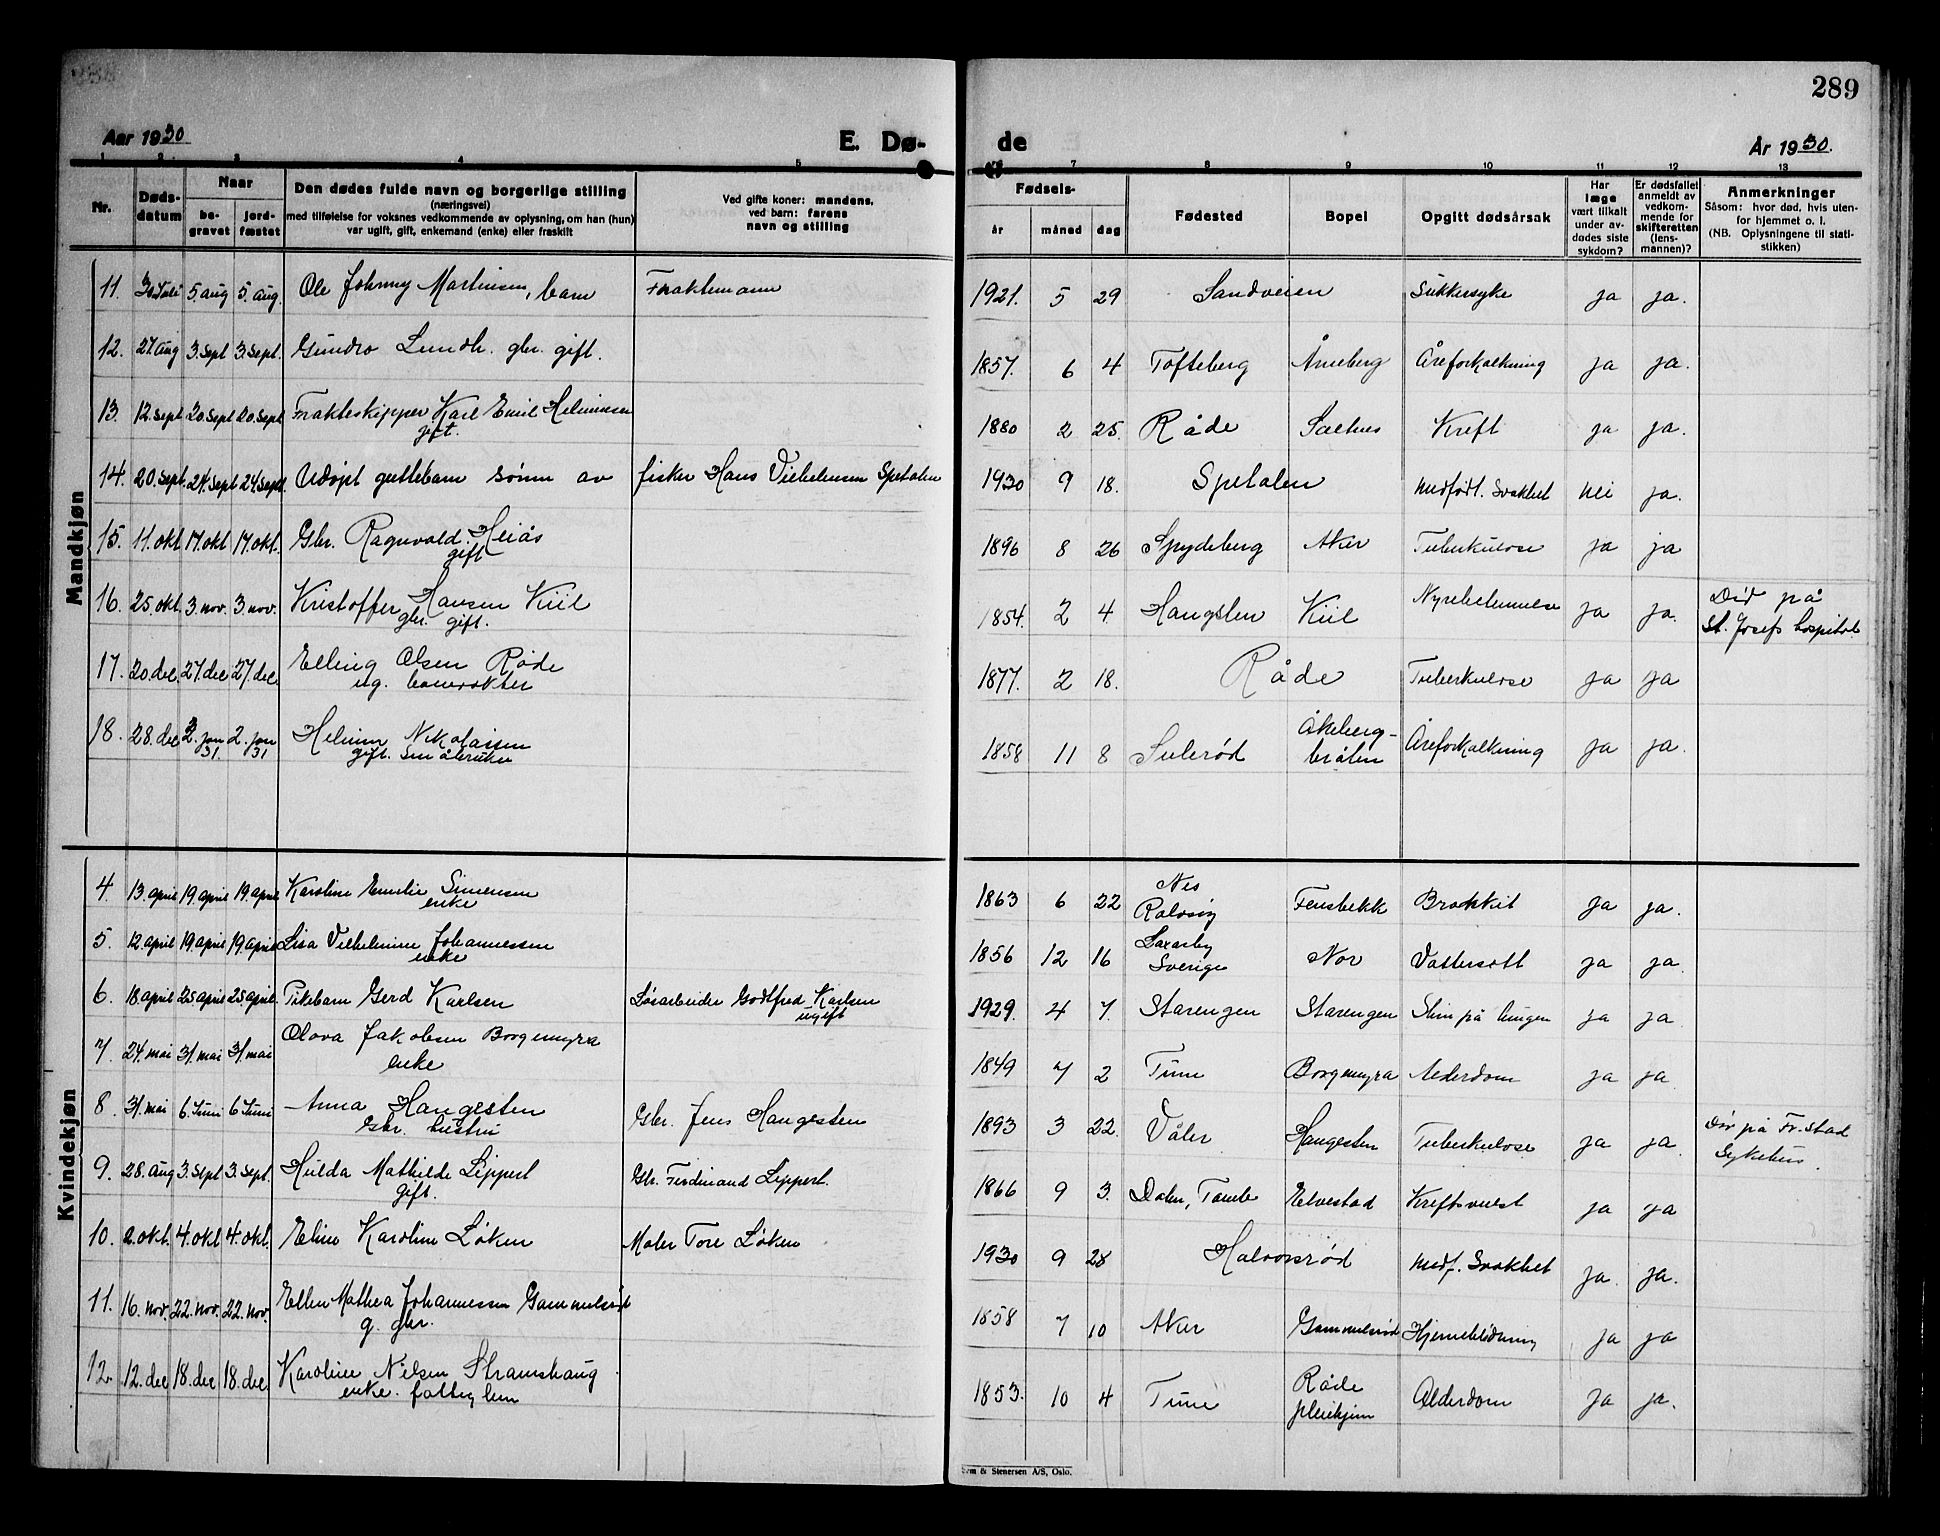 289
Aar 1930
E. Dø-
de
År 1930.
1 2 3 4 5
6 7 8 9 10 11 12 13
Nr.
Døds-
datum
Naar
be-
gravet
jord-
fæstet
Den dødes fulde navn og borgerlige stilling
(næringsvei)
med tilføielse for voksnes vedkommende av oplysning, om han (hun)
var ugift, gift, enkemand (enke) eller fraskilt
Ved gifte koner: mandens,
ved barn: farens
navn og stilling
Fødsels-
år
måned
dag
Fødested
Bopel
Opgitt dødsårsak
Har
læge
vært tilkalt
under av-
dødes siste
sykdom?
Er dødsfallet
anmeldt av
vedkom-
mende for
skifteretten
(lens-
mannen)?
Anmerkninger
Såsom: hvor død, hvis uten-
for hjemmet o. l.
(NB. Oplysningene til stati-
stikken)
Mandkjøn
11. 30 Juli 5. aug 5. aug. Ole Johnny Martinsen, barn Fraktemann 1921. 5 29 Sandveien Sukkersyke ja ja.
12. 27. aug 3. sept 3. sept. Gundro Lundh. gbr. gift. 1857. 6 4 Tofteberg Årneberg Åreforkalkning ja ja.
13. 12. sept 20. sept 20. sept Frakteskipper Karl Emil Helminsen
gift. 1880 2 25. Råde Saltnes Kreft ja ja.
14. 20. sept. 24. sept 24. sept. Udøpt guttebarn sønn av fisker Hans Vilhelmsen Spetalen 1930 9 18. Spetalen medfødt. Svakhet nei ja.
15. 11. okt 17. okt 17. okt. Gbr. Ragnvald Heiås
gift 1896 8 26 Spydeberg Aker Tuberkulose ja ja
16. 25. okt. 3. nov. 3. nov. Kristoffer Hansen Kiil
gbr. gift. 1854. 2 4 Hangslen Kiil Nyrebetennelse ja ja. Død på
St. Josefs hospital
17. 20. dec. 27. dec 27. dec. Elling Olsen Røde
ug. banevokter 1877. 2 18. Råde Tuberkulose ja ja
18. 28. dec 2. jan 31. 2. jan 31 Helmin Nikolaisen
gift. Småbruker 1858 11 8 Sulerød Åkeberg-
bråten Åreforkalkning ja ja.
Kvindekjøn
4. 13. april 19 april 19. april Karoline Emilie Simensen
enke 1863 6 22 Nes
Rolvsøy Fensbekk Brokkit ja ja.
5. 12. april 19 april 19 april Lisa Vilhelmine Johannessen
enke 1856 12 16 Laxarby
Sverige Nor Vattersott ja ja.
6. 18 april 25 april 25 april. Pikebarn Gerd Karlsen Løsarbeider Godtfred Karlsen
ugift 1929. 4 7. Starengen Starengen Slim på lungen ja ja
7. 24. mai 31. mai 31. mai Olova Jakobsen Borgemyra
enke 1849 7 2 Tune Borgemyra Alderdom ja ja.
8. 31. mai 6. Juni 6 Juni Anna Hangesten
Gbr. hustru Gbr. Jens Hangesten 1893 3 22. Våler Haugesten Tuberkulose ja ja. Død på Fr.stad
Sykehus.
9. 28. aug 3. sept 3. sept. Hulda Mathilde Lippert
gift. Gbr. Ferdinand Lippert. 1866 9 3. Dalen, Tomb Elvestad Kreftsvulst ja ja
10. 2. okt. 4. okt 4. okt. Eline Karoline Løken Maler Tore Løken 1930 9 28 Halvorsrød medf. Svakhet ja. ja.
11. 16. nov. 22. nov. 22. nov. Ellen Mathea Johannessen Gammelsrød
g. gbr. 1858 7 10 Aker Gammelsrød Hjerneblødning ja ja
12. 12. dec 18. dec 18. dec. Karoline Nilsen Stramshaug
enke. fattiglem 1853. 10 4 Tune Råde
pleiehjem Alderdom ja ja.
& Stenersen A/S, Oslo.